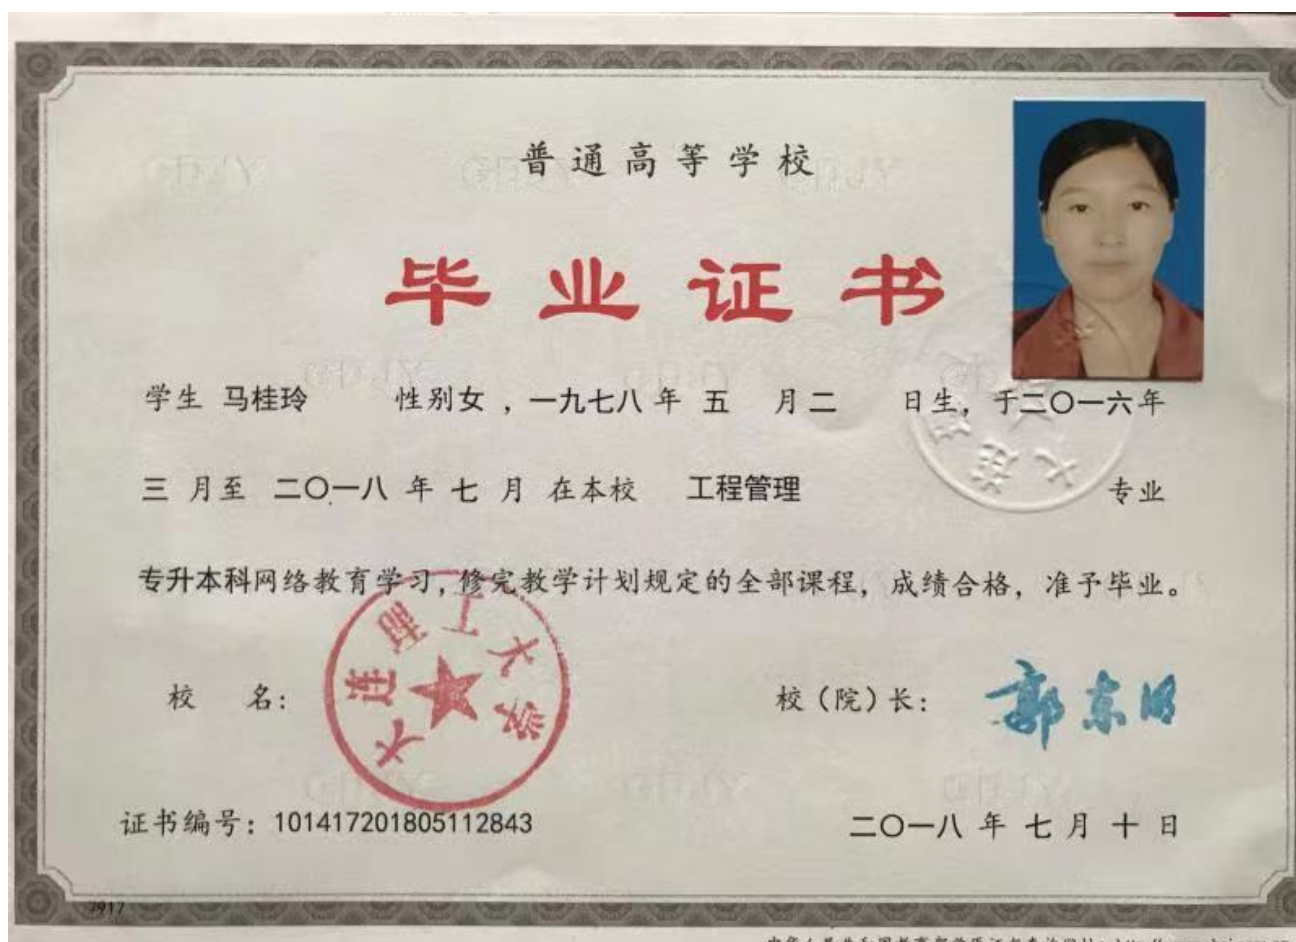 普通高等学校
毕业证书
学生 马桂玲 性别女，一九七八年 五 月二 日生，于二〇一六年
三 月至 二〇一八 年 七 月 在本校 工程管理 专业
专升本科网络教育学习，修完教学计划规定的全部课程，成绩合格，准予毕业。
校 名：
大连理工大学
校（院）长：郭东明
证书编号：101417201805112843
二〇一八 年 七 月 十 日
7917